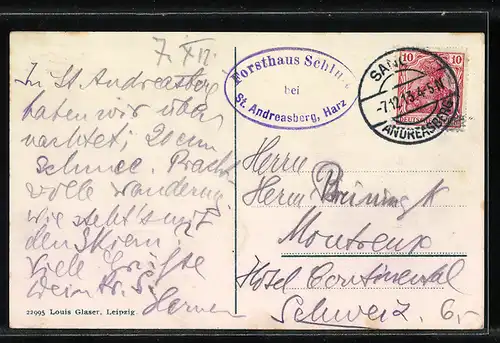 7. XII.
In St Andreasberg
haben wir über
nachtet; 20 cm
Schnee. Pracht-
volle Wanderung
wie steht's mit
den Skiern
viele Grüße
Forsthaus Schluft
bei
St. Andreasberg, Harz
SANKT
7.12.13.4-5N
ANDREASBERG
10 10
DEUTSCHES
Herrn
Herm Brüning
Montreux
Hôtel Continental
Schweiz. 6,-
22995 Louis Glaser, Leipzig.